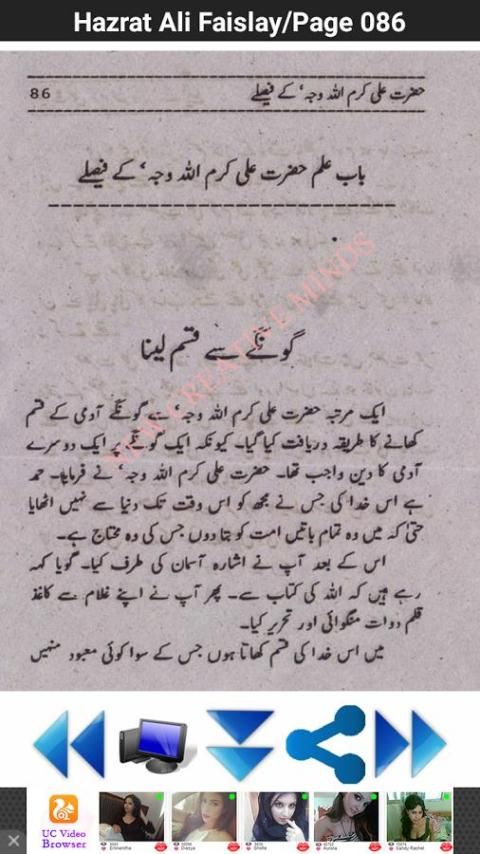 Hazrat Ali Faislay/Page 086
حضرت علی کرم اللہ وجہ، کے فیصلے 86
باب علم حضرت علی کرم اللہ وجہ، کے فیصلے
گونگے سے قسم لینا
ایک مرتبہ حضرت علی کرم اللہ وجہ، سے گونگے آدمی کے قسم
کھانے کا طریقہ دریافت کیا گیا۔ کیونکہ ایک گونگے پر ایک دوسرے
آدمی کا دین واجب تھا۔ حضرت علی کرم اللہ وجہ، نے فرمایا۔ حمد
ہے اس خدا کی جس نے مجھ کو اس وقت تک دنیا سے نہیں اٹھایا
حتیٰ کہ میں وہ تمام باتیں امت کو بتا دوں جس کی وہ محتاج ہے۔
اس کے بعد آپ نے اشارہ آسمان کی طرف کیا۔ گویا کہہ
رہے ہیں کہ اللہ کی کتاب ہے۔ پھر آپ نے اپنے غلام سے کاغذ
قلم دوات منگوائی اور تحریر کیا۔
میں اس خدا کی قسم کھاتا ہوں جس کے سوا کوئی معبود نہیں
CREATIVE MINDS
UC Video
Browser